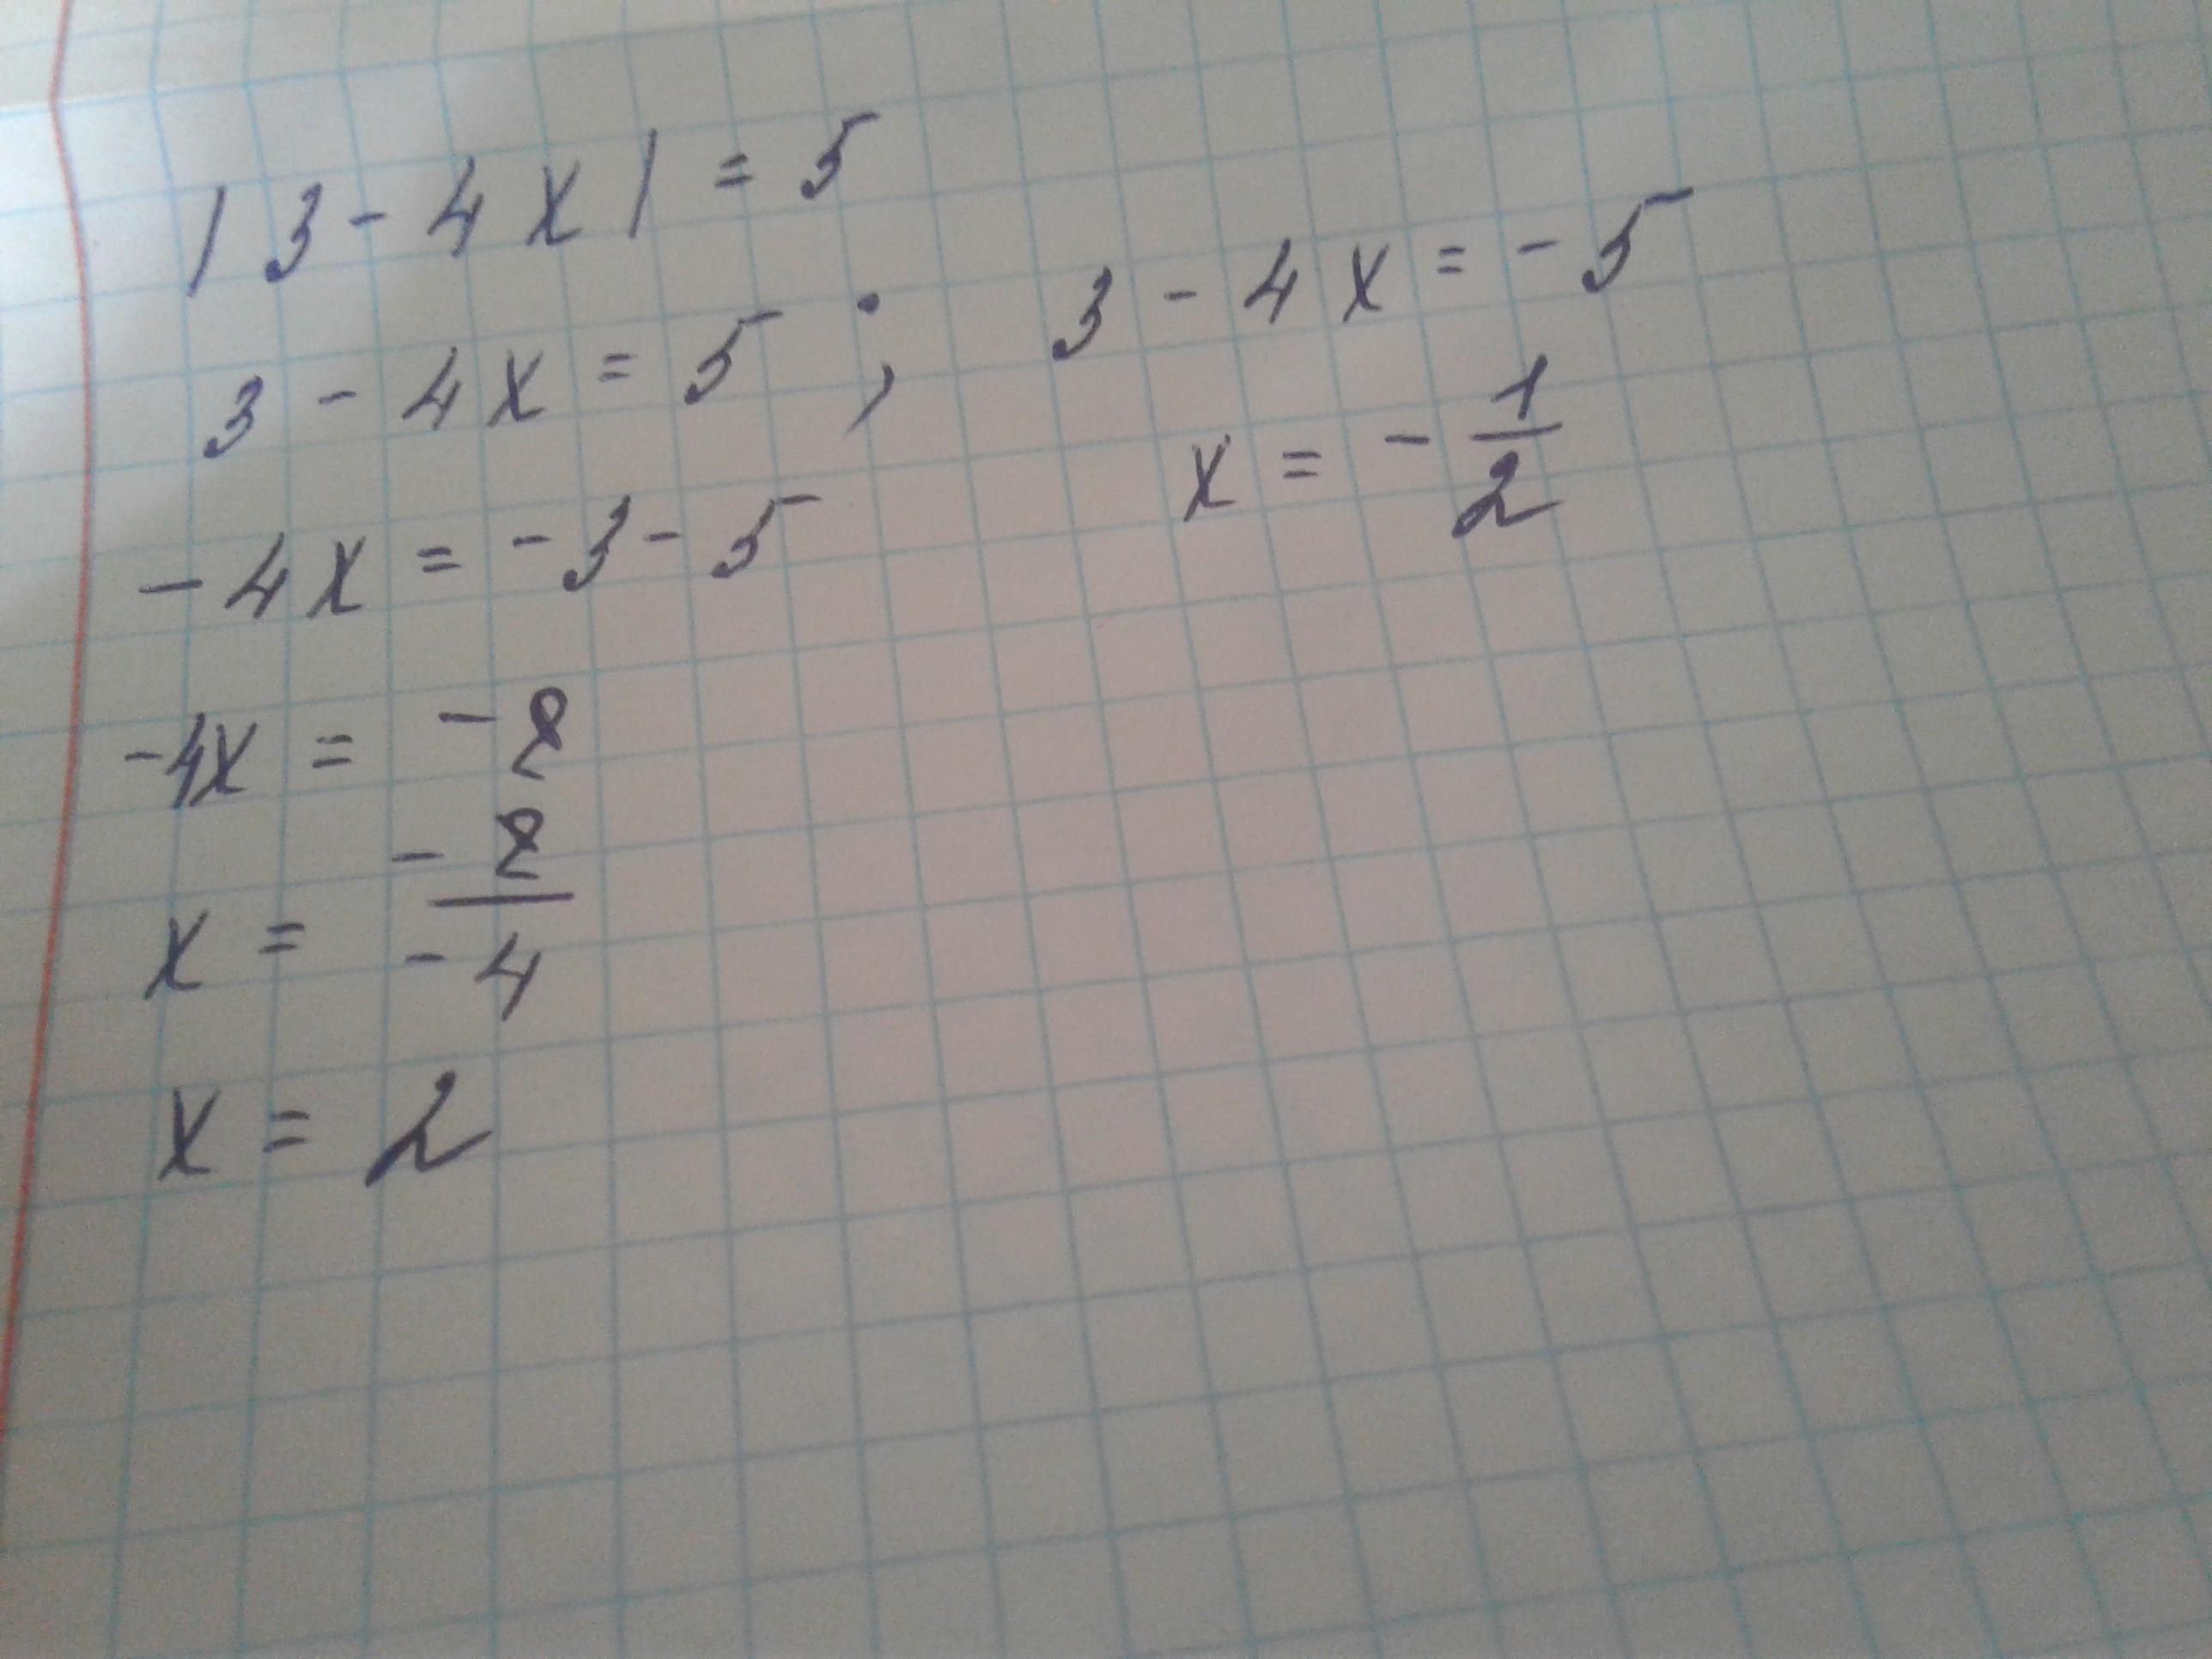 |3 - 4x| = 5
3 - 4x = 5 ; 3 - 4x = -5
x = - 1/2
-4x = -3 - 5
-4x = -8
x = -8/-4
x = 2